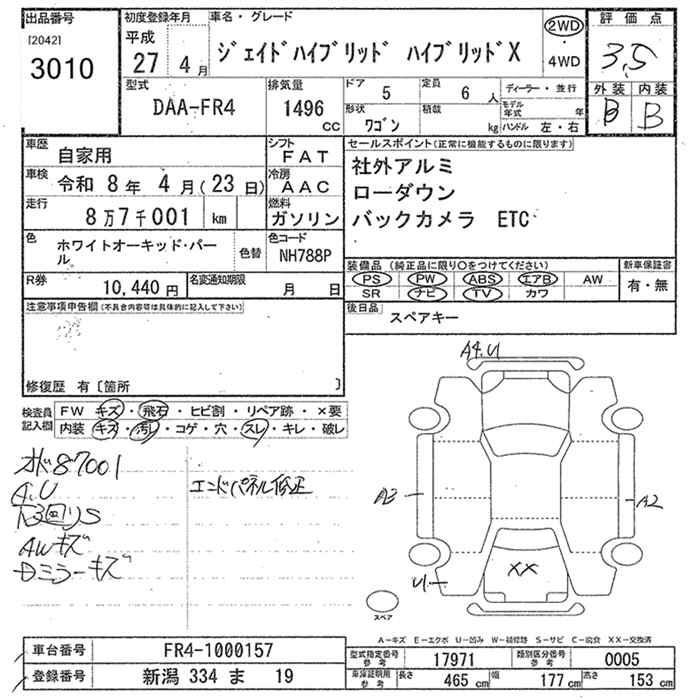 出品番号 初度登録年月 車名・グレード 評価点
[2042] 平成
3010 27 4月 ジェイドハイブリッド ハイブリッドX 2WD・4WD 3.5
型式 排気量 ドア 定員 ディーラー・並行 外装 内装
DAA-FR4 1496cc 5 6人 B B
形状 積載 モデル年式 年
ワゴン kg ハンドル 左・右
車歴 自家用 シフト FAT セールスポイント(正常に機能するものに限ります)
車検 令和 8年 4月(23日) 冷房 AAC 社外アルミ
走行 8万7千001 km 燃料 ガソリン ローダウン
バックカメラ ETC
色 ホワイトオーキッド・パール 色替 色コード NH788P
装備品(純正品に限り○をつけてください) 新車保証書
PS PW ABS エアB AW 有・無
SR ナビ TV カワ
R券 10,440円 名変通知期限 月 日
後日品 スペアキー
注意事項申告欄(不具合内容等は具体的に記入して下さい)
修復歴 有〔箇所 〕
検査員記入欄 FW キズ・飛石・ヒビ割・リペア跡・×要
内装 キズ・汚レ・コゲ・穴・スレ・キレ・破レ
オド87001
A.U
エンドパネル修正
AWキズ
Dミラーキズ
A4.U
A3
A2
U
XX
スペア
A-キズ E-エクボ U-凹み W-補修跡 S-サビ C-腐食 XX-交換済
車台番号 FR4-1000157
登録番号 新潟 334 ま 19
型式指定番号 参考 17971 類別区分番号 参考 0005
車検証明用 参考 長さ 465cm 幅 177cm 高さ 153cm